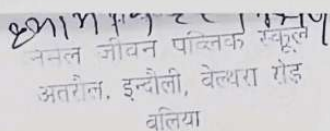 नमल जीवन पब्लिक स्कूल
अतरौल, इन्दौली, वेल्थरा रोड
बलिया